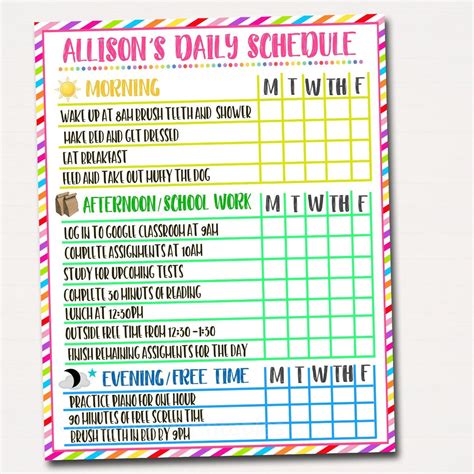 ALLISON'S DAILY SCHEDULE
MORNING M T W TH F
WAKE UP AT 8AM BRUSH TEETH AND SHOWER
MAKE BED AND GET DRESSED
EAT BREAKFAST
FEED AND TAKE OUT HUFFY THE DOG
AFTERNOON/SCHOOL WORK M T W TH F
LOG IN TO GOOGLE CLASSROOM AT 9AM
COMPLETE ASSIGNMENTS AT 10AM
STUDY FOR UPCOMING TESTS
COMPLETE 30 MINUTS OF READING
LUNCH AT 12:30PM
OUTSIDE FREE TIME FROM 12:30 -1:30
FINISH REMAINING ASSIGMENTS FOR THE DAY
EVENING/FREE TIME M T W TH F
PRACTICE PIANO FOR ONE HOUR
90 MINUTES OF FREE SCREEN TIME
BRUSH TEETH IN BED BY 9PM